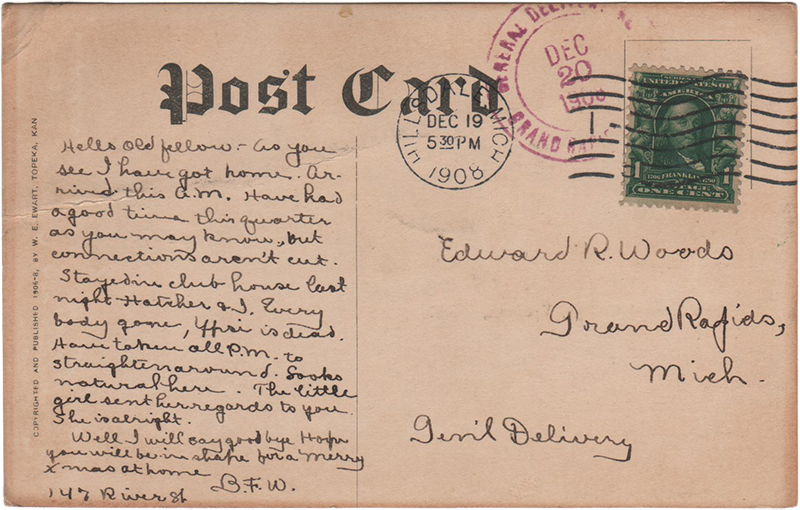 Post Card
GENERAL DELIVERY
DEC
20
1908
GRAND RAPIDS
HILLSDALE, MICH
DEC 19
5 30 PM
1908
1
SERIES 1902
UNITED STATES OF
AMERICA
FRANKLIN
1 1
POSTAGE
ONE CENT
COPYRIGHTED AND PUBLISHED 1906-8, BY W. E. EWART, TOPEKA, KAN
Hello Old fellow - As you
see I have got home. Ar-
rived this A.M. Have had
a good time this quarter
as you may know, but
connections aren't cut.
Stayed in club house last
night - Hatcher & I. Every
body gone, Ypsi is dead.
Have taken all P.M. to
straighten around. Looks
natural here. The little
girl sent her regards to you.
She is alright.
Well I will say good bye Hope
you will be in shape for a Merry
Xmas at home
B.F.W.
147 River St
Edward R. Woods
Grand Rapids,
Mich.
Gen'l Delivery